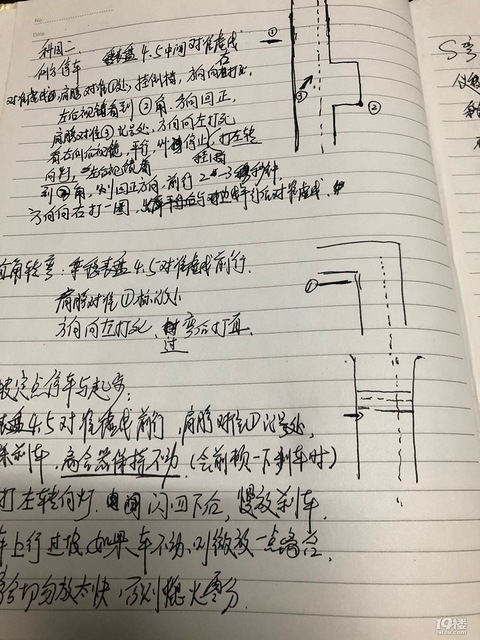 No.
Date
科目二
侧方停车 表盘4.5中间对准虚线
对准虚线,肩膀对准①处,挂倒档,方向向右打死,
左后视镜看到②角,方向回正,
肩膀对准③记号处,方向向左打死
看左倒后视镜,平行,叫停止,打左转
向灯,左后视镜看
到角,则回正方向,前行2-3秒钟,
方向向右打一圈,平行后对准虚线.
直角转弯:表盘4.5对准虚线前行.
肩膀对准①标识处
方向向左打死,过弯后打直.
坡定点停车与起步:
表盘4.5对准虚线前行,肩膀对准①记号处,
踩刹车,离合器保持不动(会前顿一下刹车时)
打左转向灯.闪四下后,慢放刹车.
车上行过坡,如果车不动,则微放一点离合,
离合切勿放太快,否则熄火零分.
S弯
仪表
19楼
19lou.com